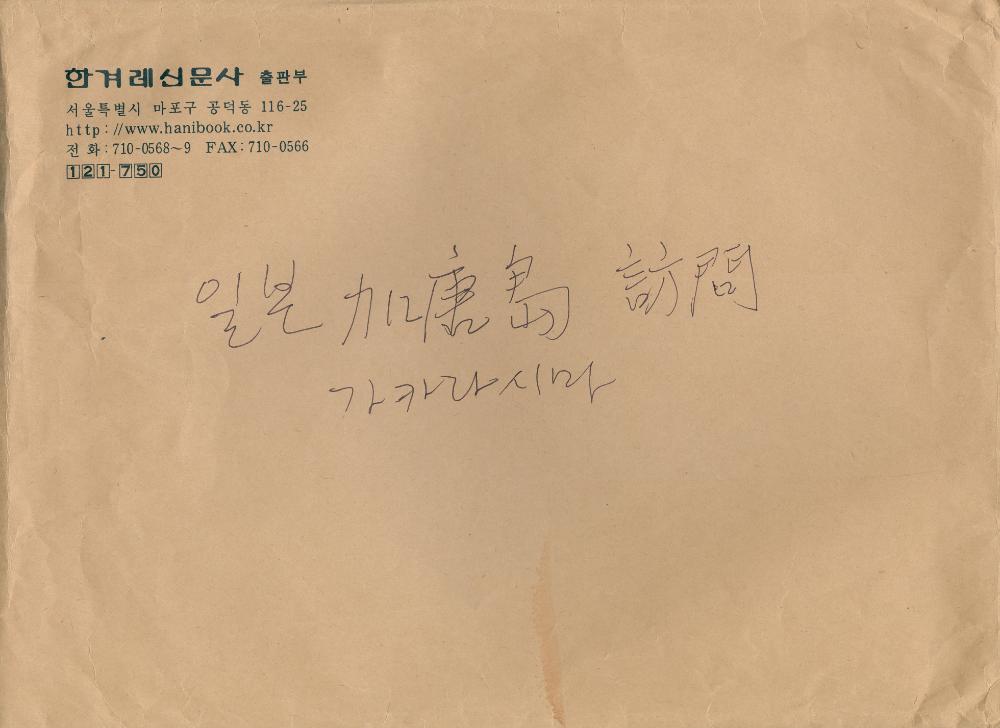 한겨레신문사 출판부
서울특별시 마포구 공덕동 116-25
http://www.hanibook.co.kr
전 화:710-0568~9 FAX:710-0566
121-750
일본 加唐島 訪問
가카라시마